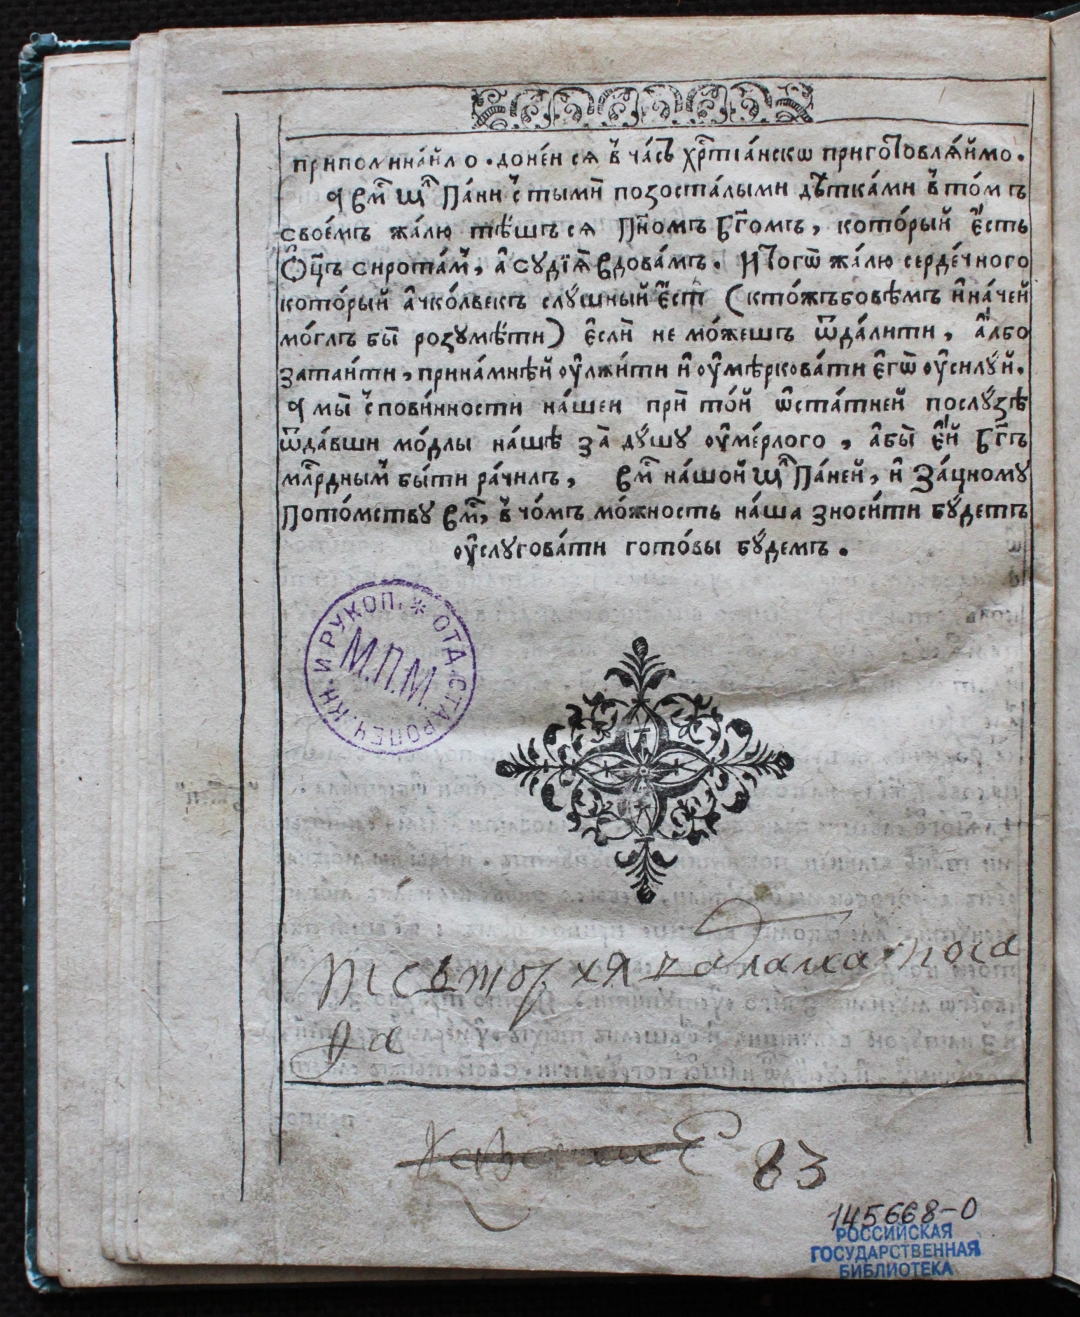 припомина́йло. доне́н ся в҆ ча́съ хрⷭ҇тїа́нскѡ приготовлѧ́ймо.
Ꙗ҆ Вм҃ Щⷧ҇ Па́ни с҆ тыми̇ позоста́лыми дѣтка́ми в҆ то́мъ
своє́мъ жа́лю тѣ́шъ сѧ Пн҃омъ Бг҃омъ, кото́рый є҆сть
Ѻц҃ъ сирота́м, а҆ судїѧ̀ Вдова́мъ. И҆ тогѡ̀ жа́лю серде́чного
кото́рый а҆чко́лвекъ слу́шный є҆ст (кто́жъбовѣ́мъ и҆на́чей
мо́глъ бы̀ розумѣ́ти) є҆сли̇ не мо́жешъ ѿда́лити, а҆лбо
затаи́ти, принамнѣ́й оу҆лжи́ти и҆ оу҆мѣркова́ти є҆гѡ̀ оу҆силу́й.
Ꙗ҆ мы̀ с҆ пови́нности на́шеи при̇ то́й ѡ҆ста́тней послу́зѣ
ѿда́вши мо́длы на́шѣ за̀ ду́шу оу҆ме́рлого, а҆бы̀ є҆й Бг҃ъ
млⷭ҇рдным бы́ти ра́чилъ, Вм҃ на́шой Щⷧ҇ Па́ней, и҆ За́цному
Пото́мству Вм҃, в҆ чо́мъ мо́жность на́ша зноси́ти бу́детъ
оу҆слугова́ти гото́вы бу́демъ.
ОТД. СТАРОПЕЧ. КН. И РУКОП. *
М.П.М.
да
83
145668-0
РОССИЙСКАЯ
ГОСУДАРСТВЕННАЯ
БИБЛИОТЕКА